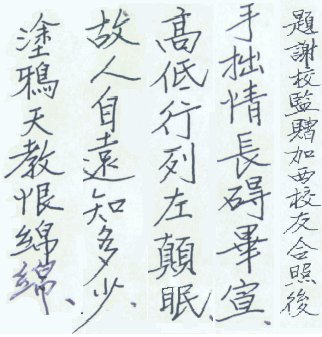 題謝校監贈加西校友合照後
手拙情長碍畢宣、
高低行列左顛眠、
故人自遠知多少、
塗鴉天教恨綿綿、